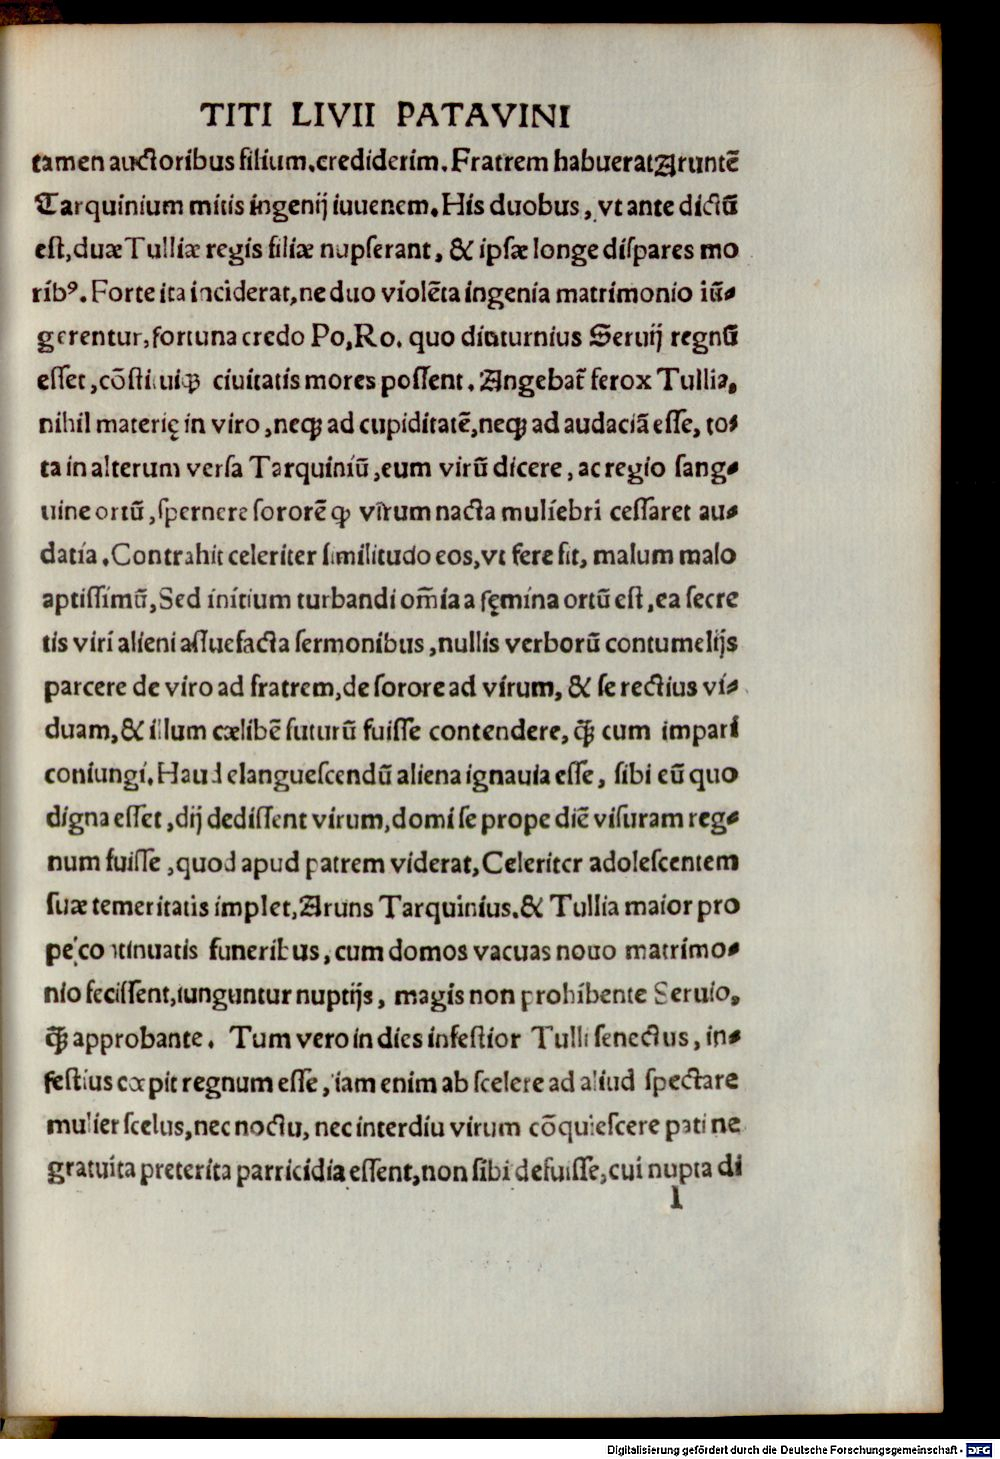 TITI LIVII PATAVINI
tamen auctoribus filium.crediderim.Fratrem habuerat Aruntē
Tarquinium mitis ingenij iuuenem.His duobus, vt ante dictū
est,duæ Tulliæ regis filiæ nupserant, & ipsæ longe dispares mo
ribꝰ. Forte ita inciderat,ne duo violēta ingenia matrimonio iū-
gerentur,fortuna credo Po,Ro. quo diuturnius Seruij regnū
esset,cōstituiqꝫ ciuitatis mores possent. Angebat̃ ferox Tullia,
nihil materię in viro,neqꝫ ad cupiditatē,neqꝫ ad audaciā esse, to-
ta in alterum versa Tarquiniū,eum virū dicere, ac regio sang-
uine ortū,spernere sororē ꝙ virum nacta muliebri cessaret au-
datia.Contrahit celeriter similitudo eos,vt fere fit, malum malo
aptissimū,Sed initium turbandi om̃ia a fęmina ortū est,ea secre
tis viri alieni assuefacta sermonibus,nullis verborū contumelijs
parcere de viro ad fratrem,de sorore ad virum, & se rectius vi-
duam,& illum cælibē futurū fuisse contendere, ꝙ̃ cum impari
coniungi.Haud elanguescendū aliena ignauia esse, sibi eū quo
digna esset,dij dedissent virum,domi se prope diē visuram reg-
num fuisse,quod apud patrem viderat,Celeriter adolescentem
suæ temeritatis implet,Aruns Tarquinius.& Tullia maior pro
pe continuatis funeribus, cum domos vacuas nouo matrimo-
nio fecissent,iunguntur nuptijs, magis non prohibente Seruio,
ꝙ̃ approbante. Tum vero in dies infestior Tulli senectus, in-
festius cœpit regnum esse, iam enim ab scelere ad aliud spectare
mulier scelus,nec noctu, nec interdiu virum cōquiescere pati ne
gratuita preterita parricidia essent,non sibi defuisse,cui nupta di
l
Digitalisierung gefördert durch die Deutsche Forschungsgemeinschaft - DFG